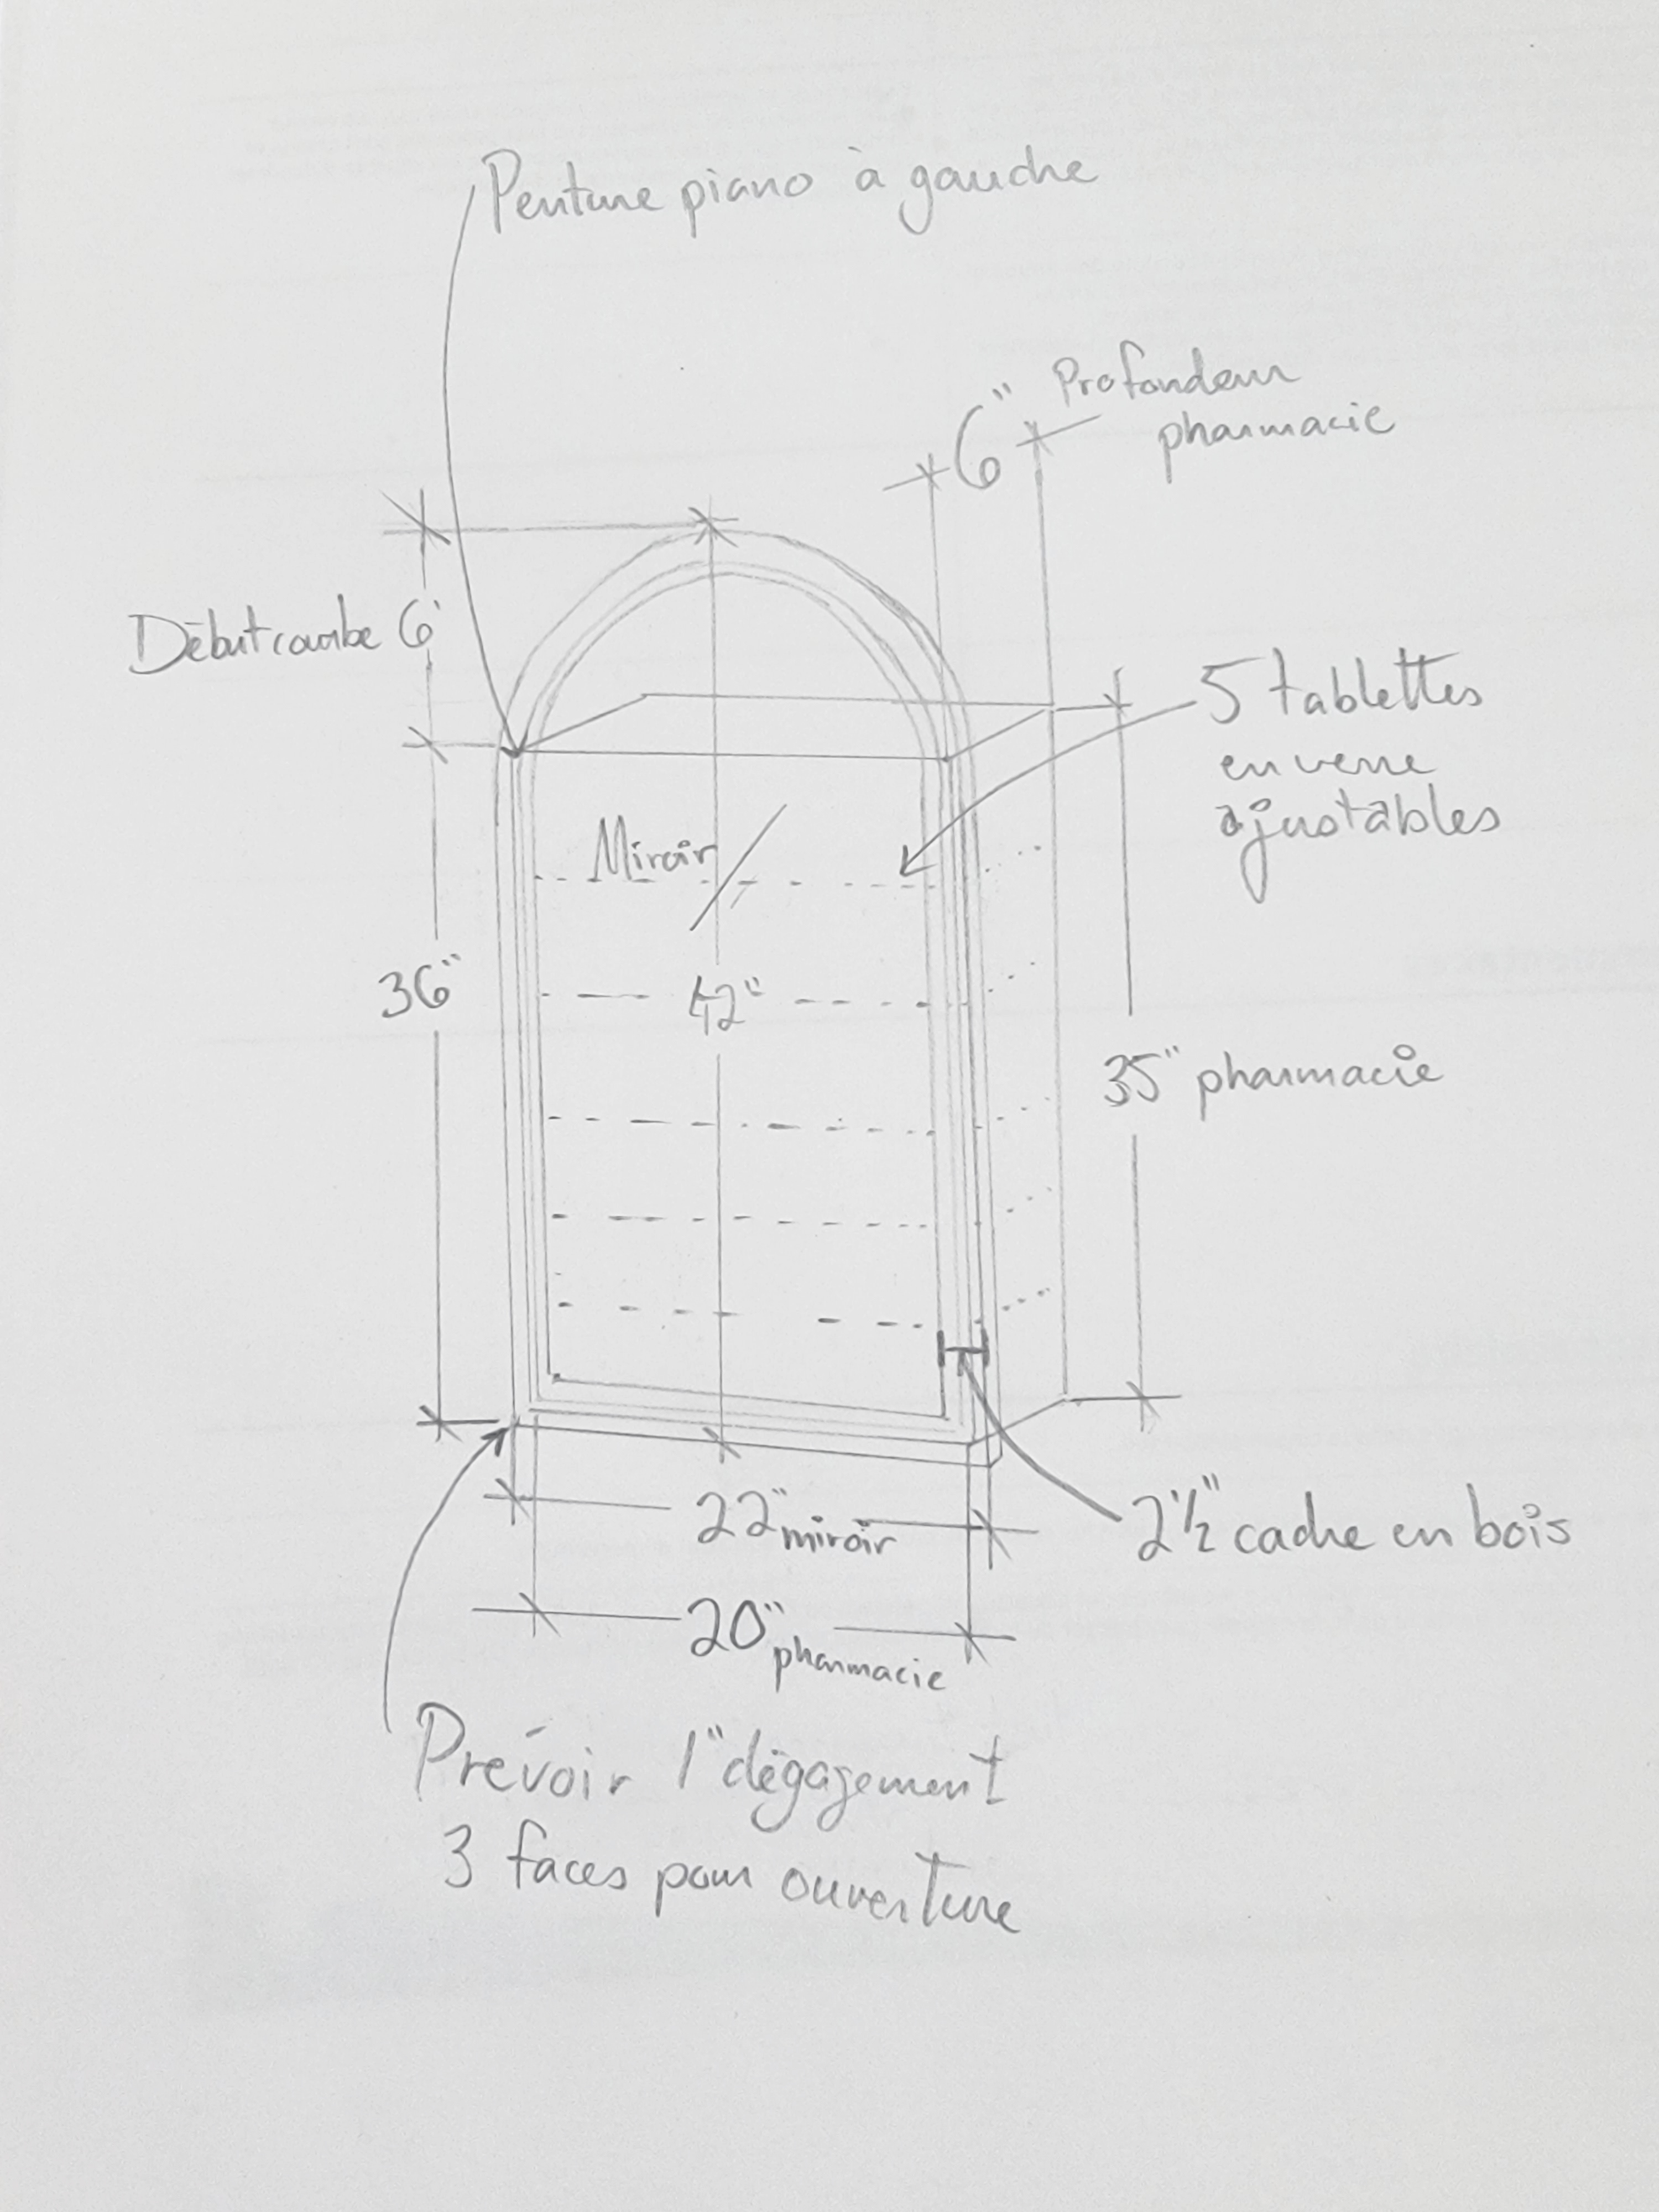 Penture piano à gauche
6" Profondeur
pharmacie
Début courbe 6'
5 tablettes
en verre
ajustables
Miroir
36"
42"
35" pharmacie
22" miroir
2 1/2" cadre en bois
20" pharmacie
Prévoir 1" dégagement
3 faces pour ouverture